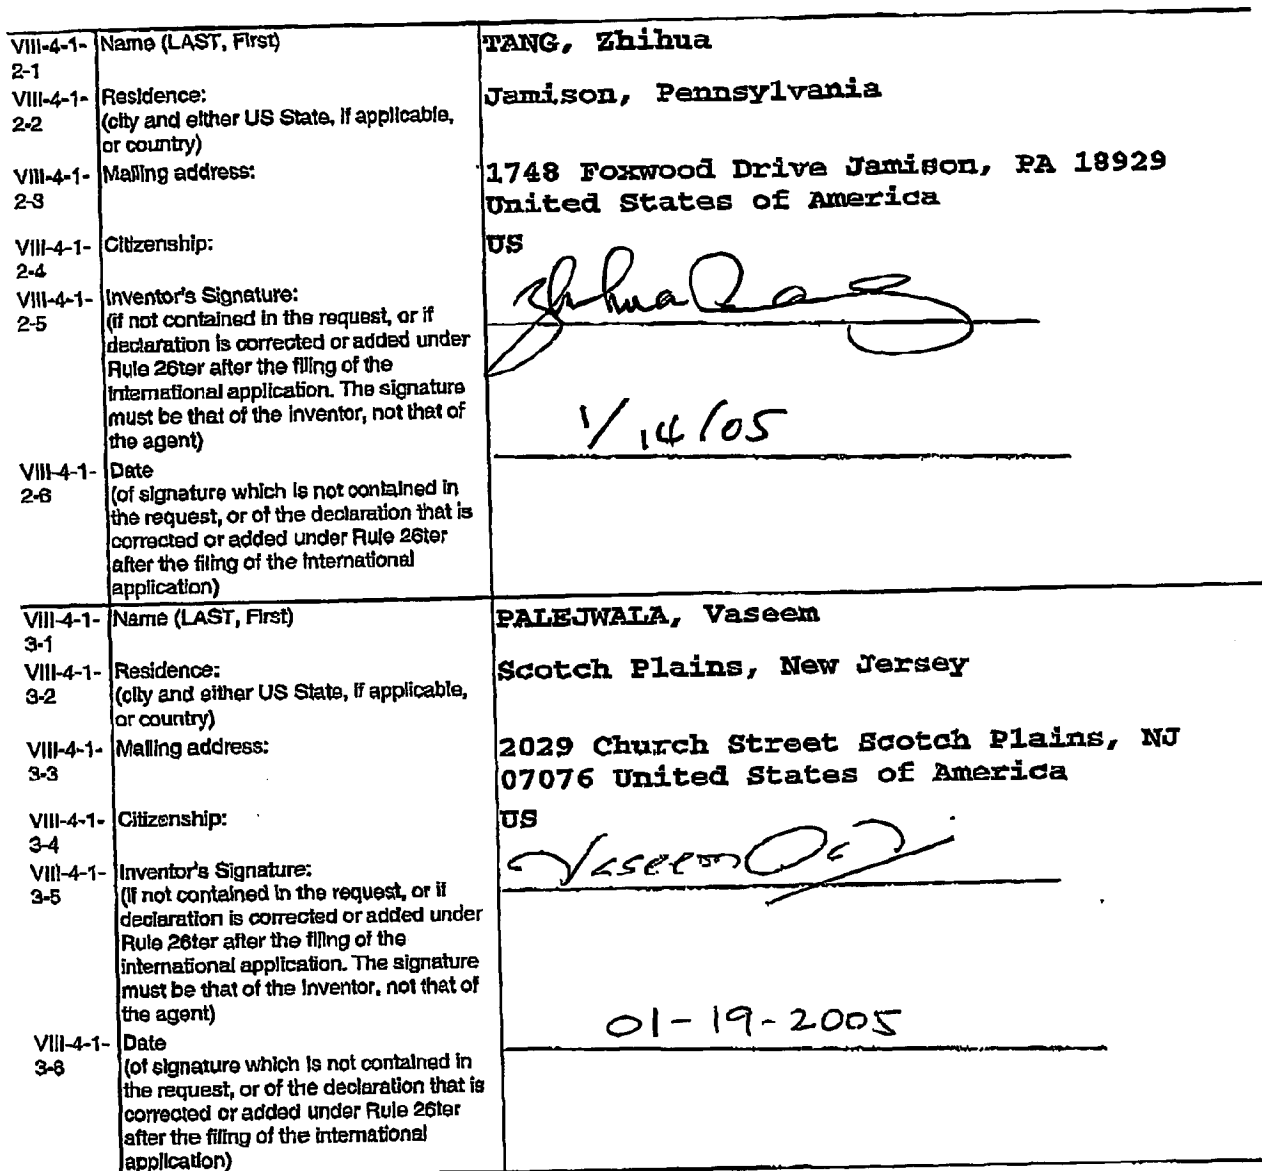 VIII-4-1- Name (LAST, First) TANG, Zhihua
2-1
VIII-4-1- Residence: Jamison, Pennsylvania
2-2 (city and either US State, if applicable,
or country)
VIII-4-1- Mailing address: 1748 Foxwood Drive Jamison, PA 18929
2-3 United States of America
VIII-4-1- Citizenship: US
2-4
VIII-4-1- Inventor's Signature: Zhihua Tang
2-5 (if not contained in the request, or if
declaration is corrected or added under
Rule 26ter after the filing of the
international application. The signature
must be that of the inventor, not that of
the agent) 1/14/05
VIII-4-1- Date
2-6 (of signature which is not contained in
the request, or of the declaration that is
corrected or added under Rule 26ter
after the filing of the international
application)
VIII-4-1- Name (LAST, First) PALEJWALA, Vaseem
3-1
VIII-4-1- Residence: Scotch Plains, New Jersey
3-2 (city and either US State, if applicable,
or country)
VIII-4-1- Mailing address: 2029 Church Street Scotch Plains, NJ
3-3 07076 United States of America
VIII-4-1- Citizenship: US
3-4
VIII-4-1- Inventor's Signature: Vaseem
3-5 (if not contained in the request, or if
declaration is corrected or added under
Rule 26ter after the filing of the
international application. The signature
must be that of the inventor, not that of
the agent) 01-19-2005
VIII-4-1- Date
3-6 (of signature which is not contained in
the request, or of the declaration that is
corrected or added under Rule 26ter
after the filing of the international
application)